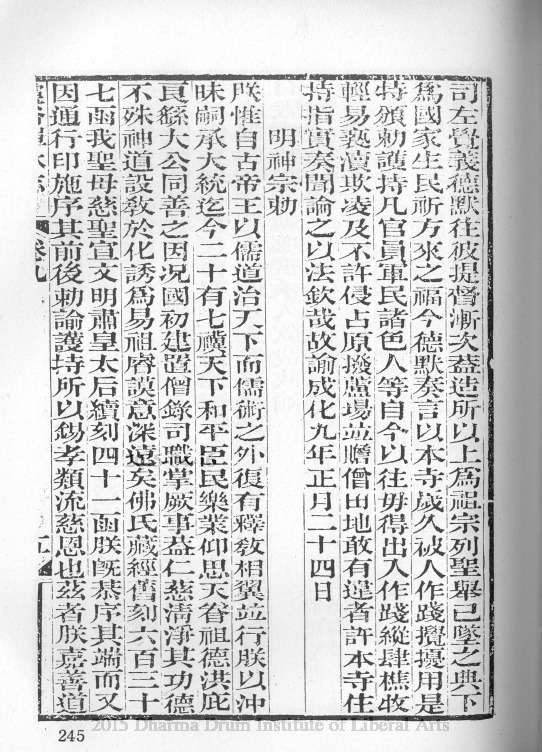 司左覺義德默往彼提督漸次葢造所以上爲祖宗列聖舉已墜之典下
爲國家生民祈方來之福今德默奏言以本寺歲久被人作踐攪擾用是
特頒勅護持凡官員軍民諸色人等自今以往毋得出入作踐縱肆樵牧
輕易褻瀆欺凌及不許侵占原撥蘆場並贍僧田地敢有違者許本寺住
持指實奏聞論之以法欽哉故諭成化九年正月二十四日
明神宗勅
朕惟自古帝王以儒道治天下而儒術之外復有釋敎相翼並行朕以沖
昧嗣承大統迄今二十有七禩天下和平臣民樂業仰思天眷祖德洪庇
良繇大公同善之因况國初建置僧錄司職掌厥事葢仁慈淸淨其功德
不殊神道設敎於化誘爲易祖睿謨意深遠矣佛氏藏經舊刻六百三十
七函我聖母慈聖宣文明肅皇太后續刻四十一函朕旣恭序其端而又
因通行印施序其前後勅諭護持所以錫孝類流慈恩也茲者朕嘉善道
卷九
245
2015 Dharma Drum Institute of Liberal Arts